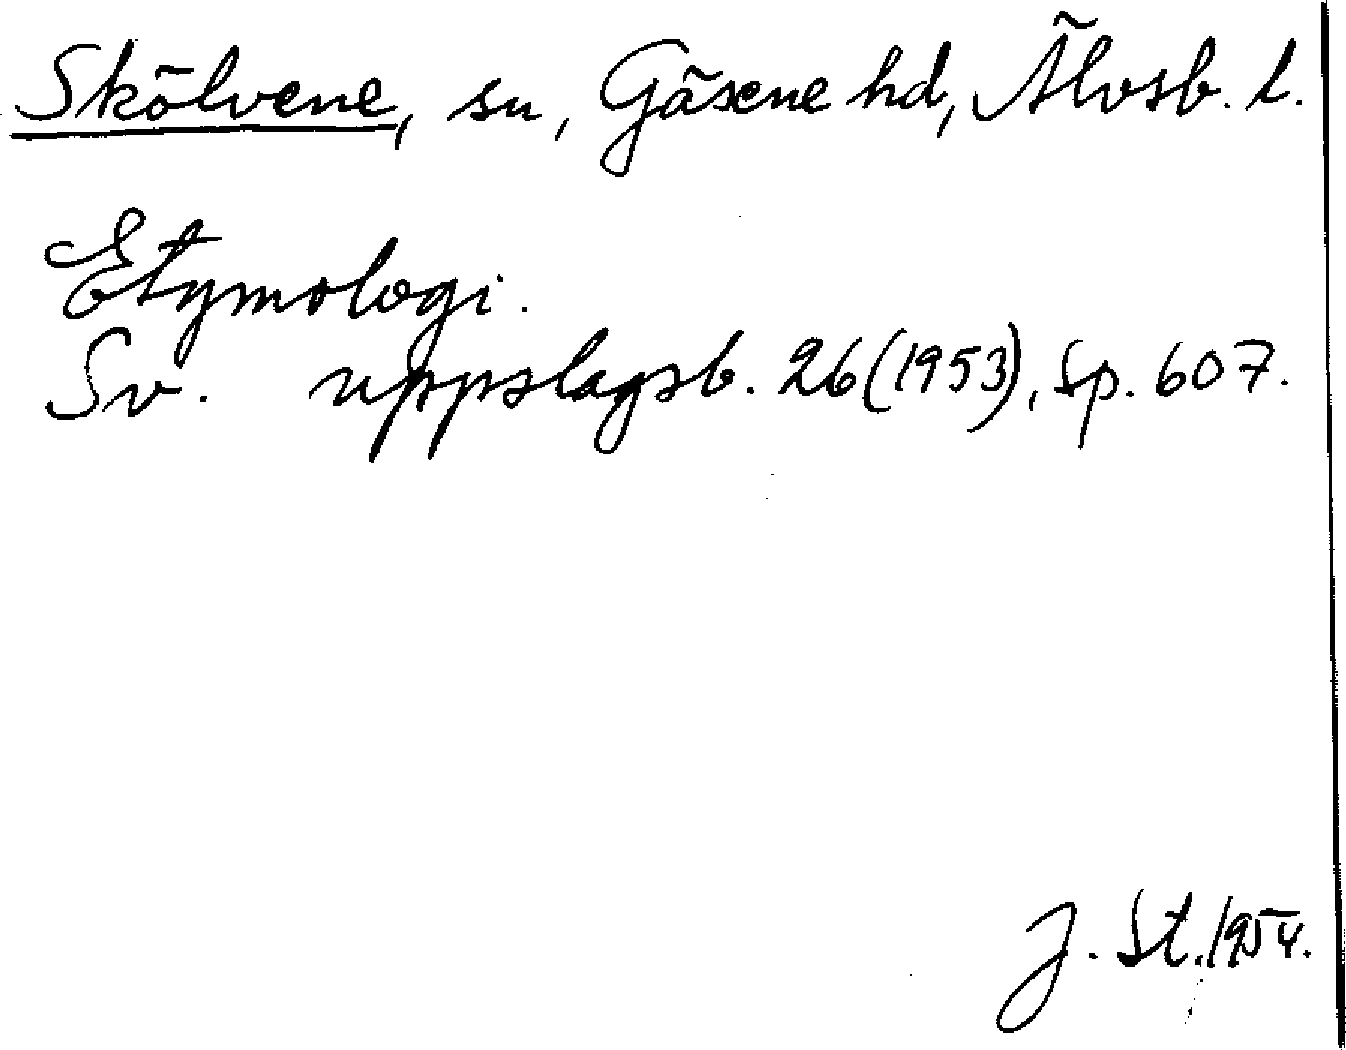 Skölvene, sn, Gäsene hd, Älvsb. l.
Etymologi.
Sv. uppslagsb. 26 (1953), sp. 607.
J. St. 1954.